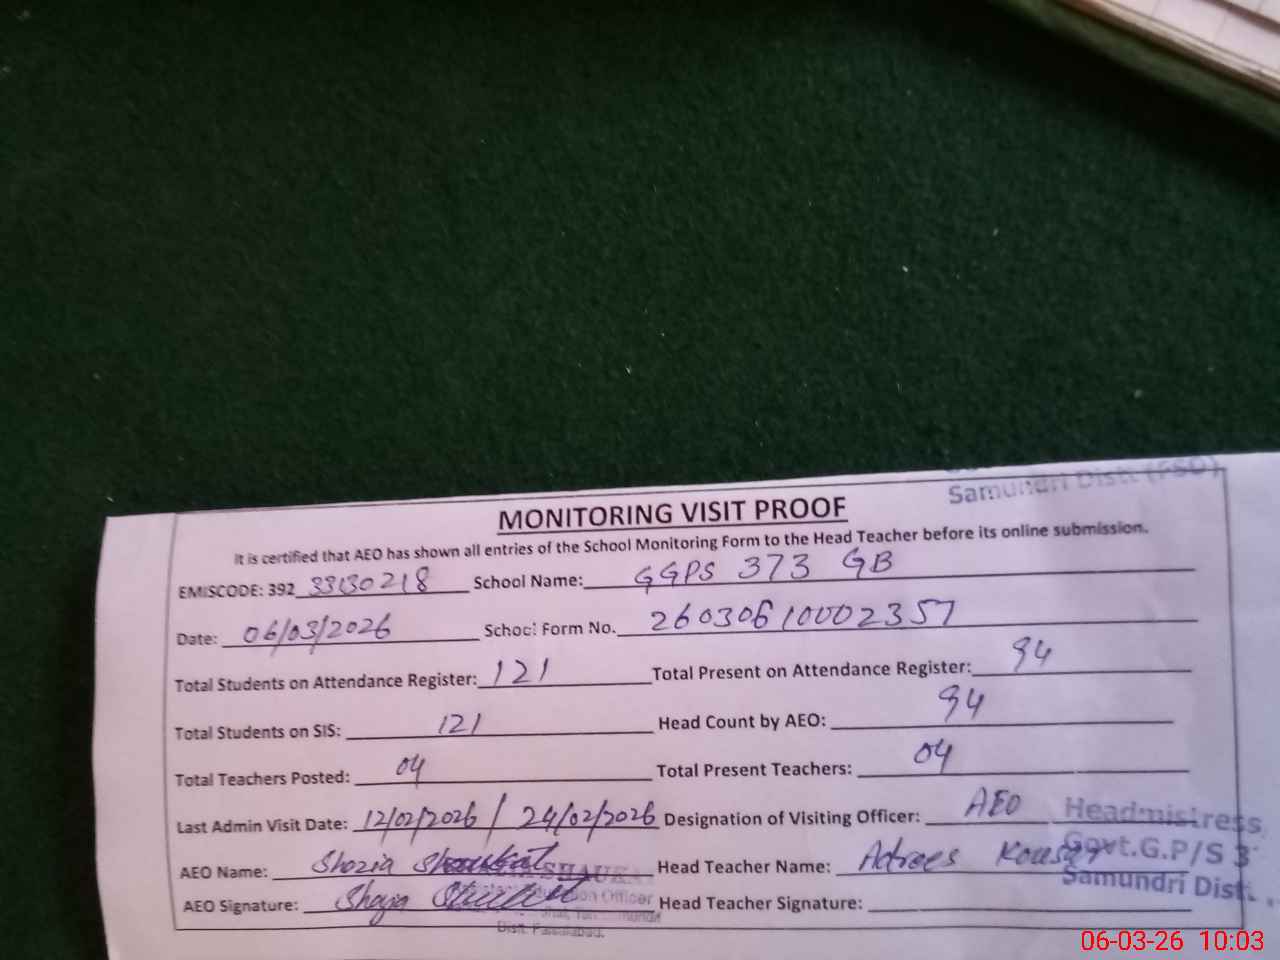 Samundri Distt. (FSD)
MONITORING VISIT PROOF
It is certified that AEO has shown all entries of the School Monitoring Form to the Head Teacher before its online submission.
EMISCODE: 392 33130218 School Name: GGPS 373 GB
Date: 06/03/2026 School Form No. 26030610002357
Total Students on Attendance Register: 121 Total Present on Attendance Register: 94
Total Students on SIS: 121 Head Count by AEO: 94
Total Teachers Posted: 04 Total Present Teachers: 04
Last Admin Visit Date: 12/02/2026 / 24/02/2026 Designation of Visiting Officer: AEO
AEO Name: Shazia Shaukat Head Teacher Name: Adrees Kousar
AEO Signature: Shazia Head Teacher Signature:
SHAUKAT
Education Officer
Distt. Faisalabad.
Headmistress
Govt.G.P/S 3
Samundri Distt.
06-03-26 10:03